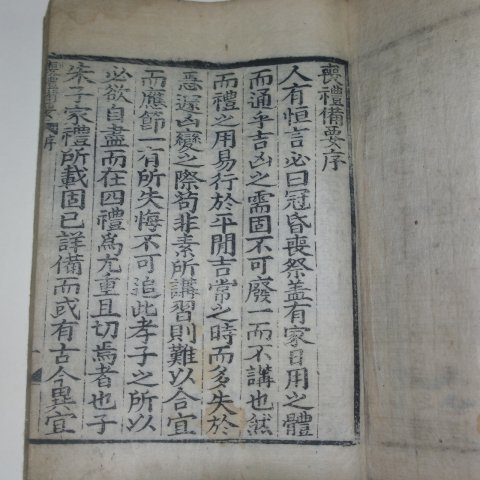 喪禮備要序
人有恒言必曰冠昏喪祭盖有家日用之體
而通乎吉凶之需固不可廢一而不講也然
而禮之用易行於平閒吉常之時而多失於
急遽凶變之際苟非素所講習則難以合宜
而應節一有所失悔不可追此孝子之所以
必欲自盡而在四禮爲尤重且切焉者也子
朱子家禮所載固已詳備而或有古今異宜
喪禮備要序